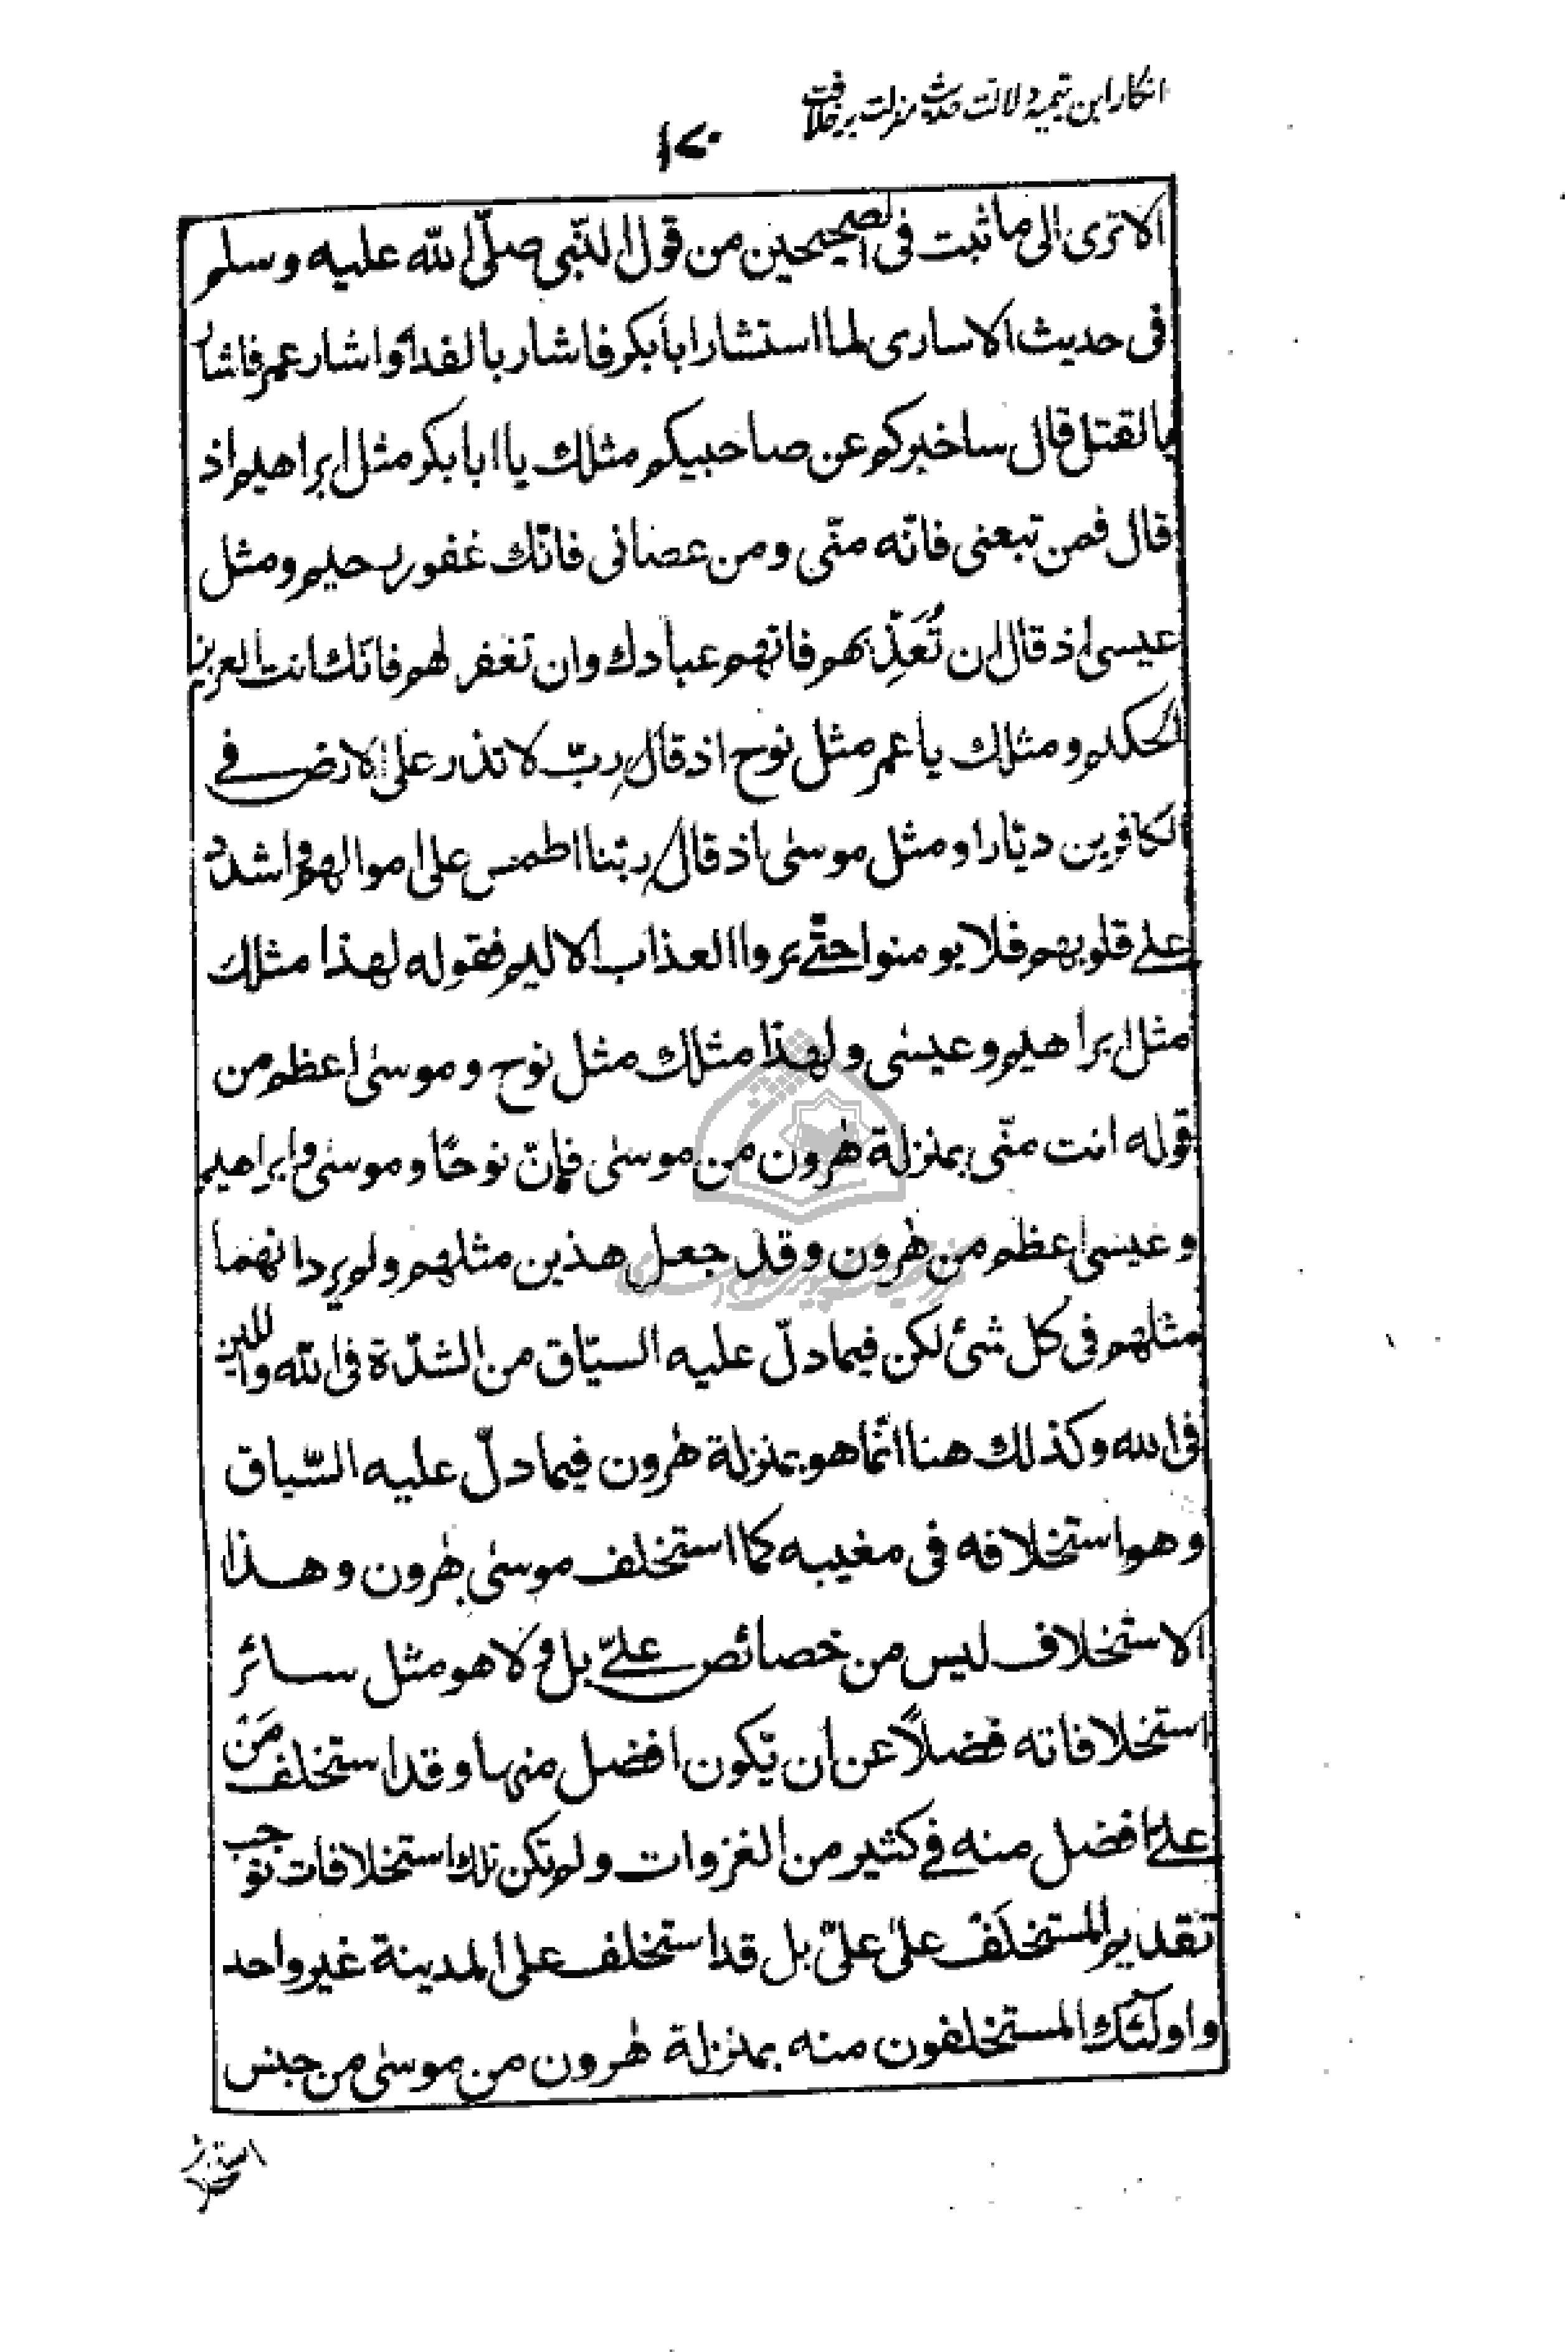 انکار ابن تیمیه دلالت حدیث منزلت بر خلافت
۱۷۰
الا ترى الى ما ثبت فى الصحيحين من قول النّبى صلّى الله عليه وسلم
فى حديث الاسارى لما استشار ابا بكر فاشار بالفداء و اشار عمر فاشار
بالقتل قال ساخبركم عن صاحبيكم مثلك يا ابا بكر مثل ابراهيم اذ
قال فمن تبعنى فانّه منّى ومن عصانى فانّك غفور رحيم ومثل
عيسى اذ قال ان تُعَذِّبهم فانّهم عبادك وان تغفر لهم فانّك انت العزيز
الحكيم ومثلك يا عمر مثل نوح اذ قال ربّ لا تذر على الارض فے
الكافرين ديّارا ومثل موسىٰ اذ قال ربّنا اطمس على اموالهم و اشدد
علے قلوبهم فلا يومنوا حتّے يروا العذاب الاليم فقوله لهذا مثلك
مثل ابراهيم و عيسىٰ و لهذا مثلك مثل نوح و موسىٰ اعظم من
قوله انت منّى بمنزلة هٰرون من موسىٰ فإنّ نوحًا و موسىٰ و ابراهيم
و عيسىٰ اعظم من هٰرون و قد جعل هذين مثلهم ولم يرد انهما
مثلهم فى كل شئ لكن فيما دلّ عليه السيّاق من الشدّة فى الله واللين
فى الله وكذلك هنا انّما هو بمنزلة هٰرون فيما دلّ عليه السّياق
وهو استخلافه فى مغيبه كما استخلف موسىٰ هٰرون وهذا
الاستخلاف ليس من خصائص علےّ بل و لا هو مثل سائر
استخلافاته فضلاً عن ان يّكون افضل منها وقد استخلف مَن
علےّ افضل منه فے كثير من الغزوات ولم تكن تلك استخلافات توجب
تقديم المستخلَف علىٰ علىّ بل قد استخلف على المدينة غير واحد
و اولٓئك المستخلفون منه بمنزلة هٰرون من موسىٰ من جنس